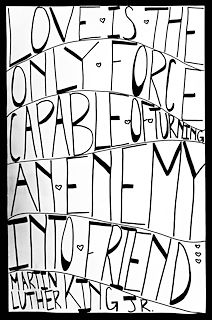 LOVE·IS·THE
ONLY·FORCE
CAPABLE·OF·TURNING
AN·ENEMY
INTO·FRIEND
MARTIN
LUTHER KING JR.